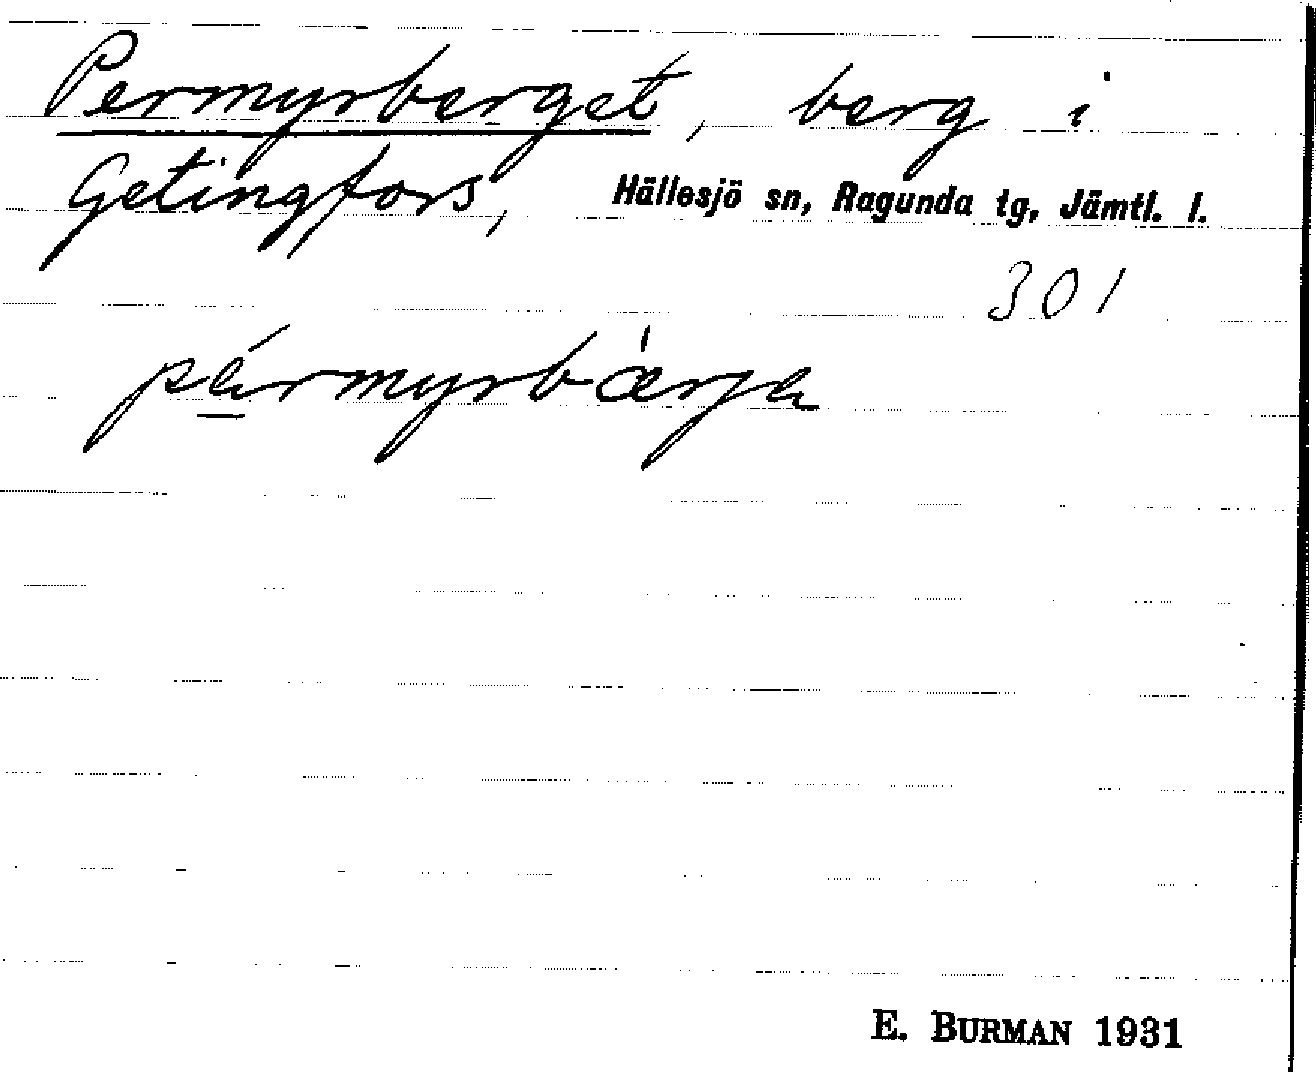 Permyrberget, berg i
Getingfors, Hällesjö sn, Ragunda tg, Jämtl. l.
301
pérmyrbǽrje
E. BURMAN 1931